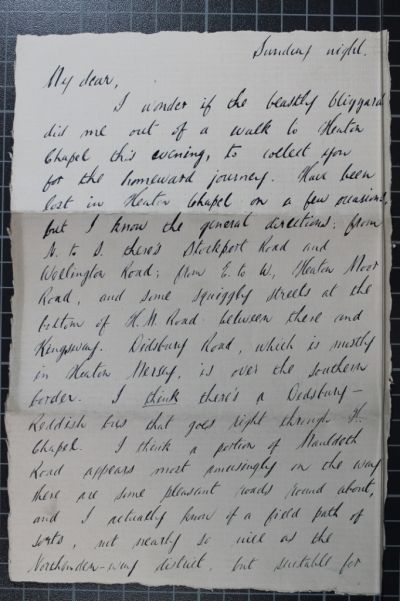 Sunday night.
My dear,
I wonder if the beastly blizzard
did me out of a walk to Heaton
Chapel this evening, to collect you
for the homeward journey. Have been
lost in Heaton Chapel on a few occasions,
but I know the general directions; from
N. to S. there's Stockport Road and
Wellington Road; from E. to W, Heaton Moor
Road, and some squiggly streets at the
bottom of H.M. Road between there and
Kingsway. Didsbury Road, which is mostly
in Heaton Mersey, is over the southern
border. I think there's a Didsbury-
Reddish bus that goes right through H.
Chapel. I think a portion of Mauldeth
Road appears most amusingly on the way
there are some pleasant roads round about,
and I actually know of a field path of
sorts, not nearly so nice as the
Northenden-way district, but suitable for